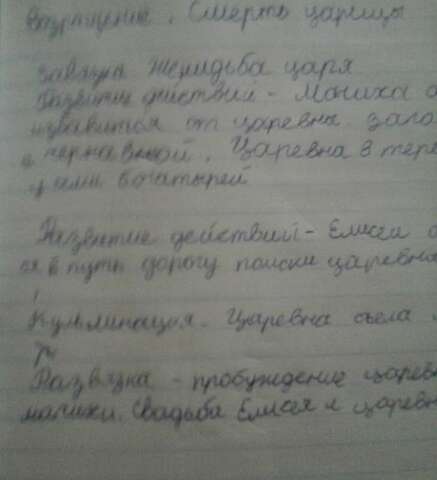 возращение. Смерть царицы
завязка женидьба царя
Развитие действий - Мачиха
избавится от царевна. заго
с чернавкой. Царевна в тере
семи богатырей
Развитие действий - Елисей о
ся в путь дорогу поиски царевна
Кульминация - Царевна съела
Развязка - пробуждение царев
мачихи. Свадьба Елисея и царевн